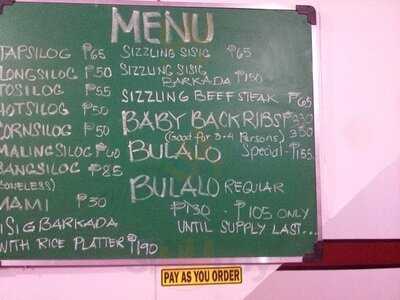 MENU
TAPSILOG ₱65
LONGSILOG ₱50
TOSILOG ₱55
HOTSILOG ₱50
CORNSILOG ₱50
MALINGSILOG ₱60
BANGSILOG ₱85
(BONELESS)
MAMI ₱30
SISIG BARKADA
WITH RICE PLATTER ₱190
SIZZLING SISIG ₱65
SIZZLING SISIG
BARKADA ₱150
SIZZLING BEEF STEAK ₱65
BABY BACK RIBS ₱330
(Good for 3-4 Persons) 350
BULALO Special - ₱155
BULALO REGULAR
₱130 - ₱105 ONLY
UNTIL SUPPLY LAST...
PAY AS YOU ORDER